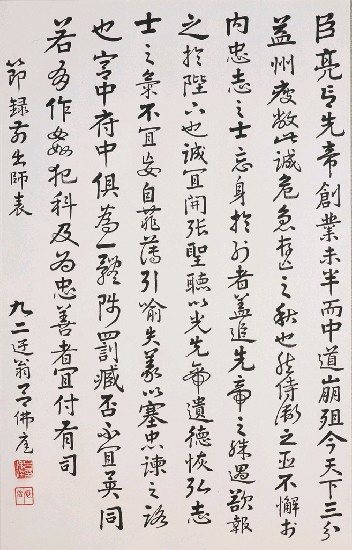 臣亮言先帝創業未半而中道崩殂今天下三分
益州疲敝此誠危急存亡之秋也然侍衛之臣不懈於
內忠志之士忘身於外者蓋追先帝之殊遇欲報
之於陛下也誠宜開張聖聽以光先帝遺德恢弘志
士之氣不宜妄自菲薄引喻失義以塞忠諫之路
也宮中府中俱為一體陟罰臧否不宜異同
若有作姦犯科及為忠善者宜付有司
節錄前出師表
九二迂翁呂佛庭